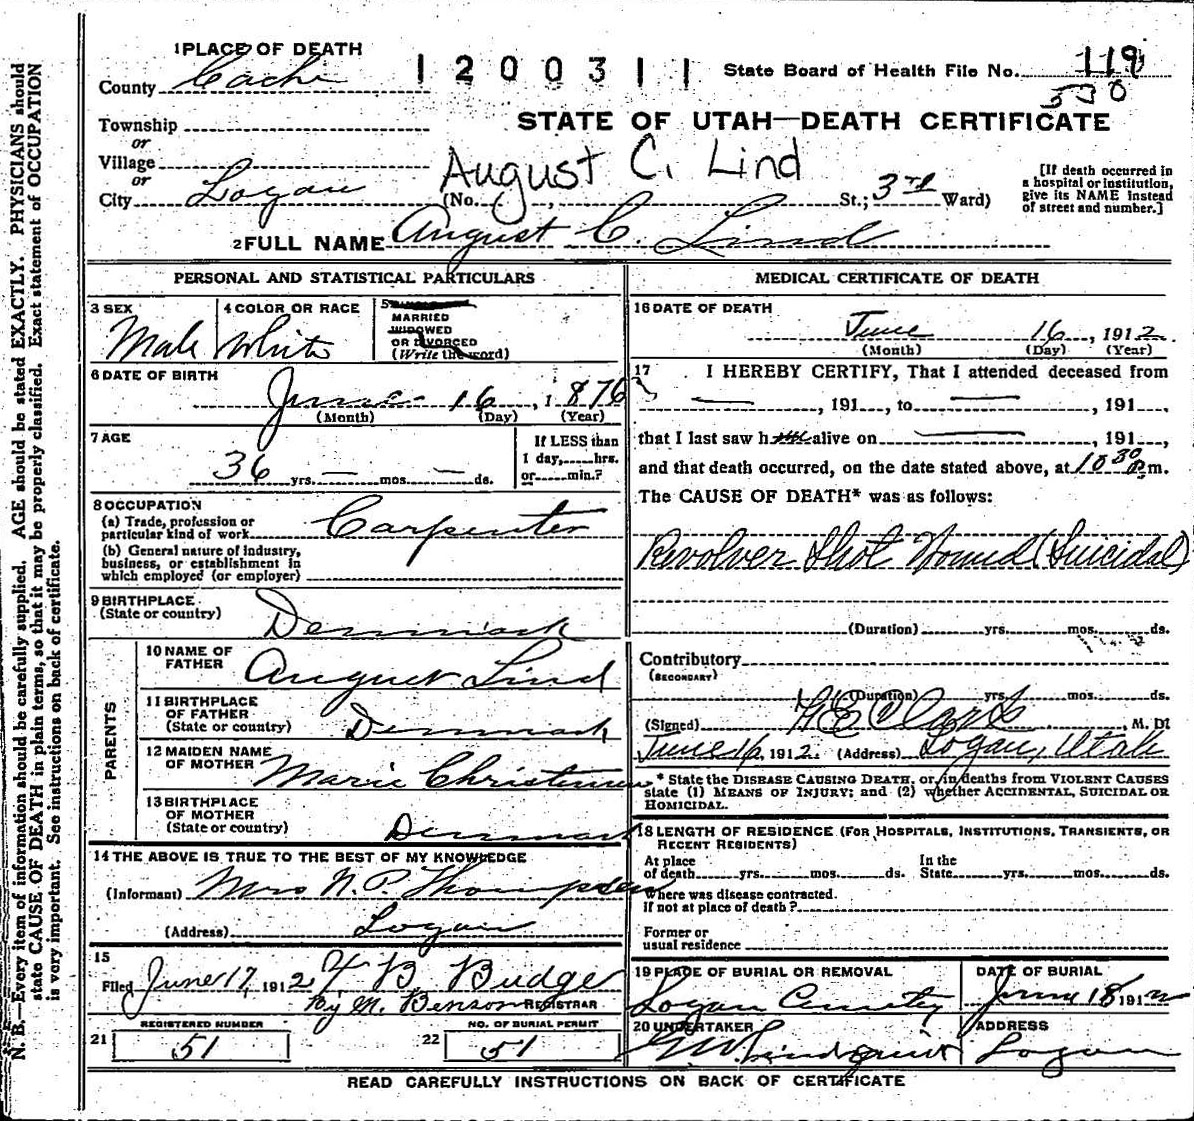 1 PLACE OF DEATH
County Cache
1200311
State Board of Health File No. 119
530
Township
or
Village
or
City Logan
STATE OF UTAH—DEATH CERTIFICATE
August C. Lind
(No. , St.; 3rd Ward)
[If death occurred in
a hospital or institution,
give its NAME instead
of street and number.]
2 FULL NAME August C. Lind
PERSONAL AND STATISTICAL PARTICULARS
3 SEX
Male
4 COLOR OR RACE
White
5
MARRIED
WIDOWED
OR DIVORCED
(Write the word)
6 DATE OF BIRTH
June 16, 1876
(Month) (Day) (Year)
7 AGE
36 yrs. — mos. — ds.
If LESS than
1 day, hrs.
or min.?
8 OCCUPATION
(a) Trade, profession or
particular kind of work Carpenter
(b) General nature of industry,
business, or establishment in
which employed (or employer)
9 BIRTHPLACE
(State or country)
Denmark
PARENTS
10 NAME OF
FATHER
August Lind
11 BIRTHPLACE
OF FATHER
(State or country)
Denmark
12 MAIDEN NAME
OF MOTHER
Marie Christensen
13 BIRTHPLACE
OF MOTHER
(State or country)
Denmark
14 THE ABOVE IS TRUE TO THE BEST OF MY KNOWLEDGE
(Informant) Mrs N. P. Thompsen
(Address) Logan
15
Filed June 17, 1912 B. Budge
By M. Benson REGISTRAR
REGISTERED NUMBER
21 51
NO. OF BURIAL PERMIT
22 51
MEDICAL CERTIFICATE OF DEATH
16 DATE OF DEATH
June 16, 1912
(Month) (Day) (Year)
17 I HEREBY CERTIFY, That I attended deceased from
— , 191 , to — , 191 ,
that I last saw h alive on — , 191 ,
and that death occurred, on the date stated above, at 10 30 P.m.
The CAUSE OF DEATH* was as follows:
Revolver Shot Wound (Suicidal)
(Duration) yrs. mos. ds.
Contributory
(SECONDARY)
(Duration) yrs. mos. ds.
(Signed) M. D.
June 16, 1912. (Address) Logan, Utah
* State the DISEASE CAUSING DEATH, or, in deaths from VIOLENT CAUSES
state (1) MEANS OF INJURY; and (2) whether ACCIDENTAL, SUICIDAL OR
HOMICIDAL.
18 LENGTH OF RESIDENCE (FOR HOSPITALS, INSTITUTIONS, TRANSIENTS, OR
RECENT RESIDENTS)
At place
of death yrs. mos. ds.
In the
State yrs. mos. ds.
Where was disease contracted.
If not at place of death?
Former or
usual residence
19 PLACE OF BURIAL OR REMOVAL
Logan Cemetery
DATE OF BURIAL
June 18 1912
20 UNDERTAKER
Lindquist
ADDRESS
Logan
READ CAREFULLY INSTRUCTIONS ON BACK OF CERTIFICATE
N. B.—Every item of information should be carefully supplied. AGE should be stated EXACTLY. PHYSICIANS should
state CAUSE OF DEATH in plain terms, so that it may be properly classified. Exact statement of OCCUPATION
is very important. See instructions on back of certificate.